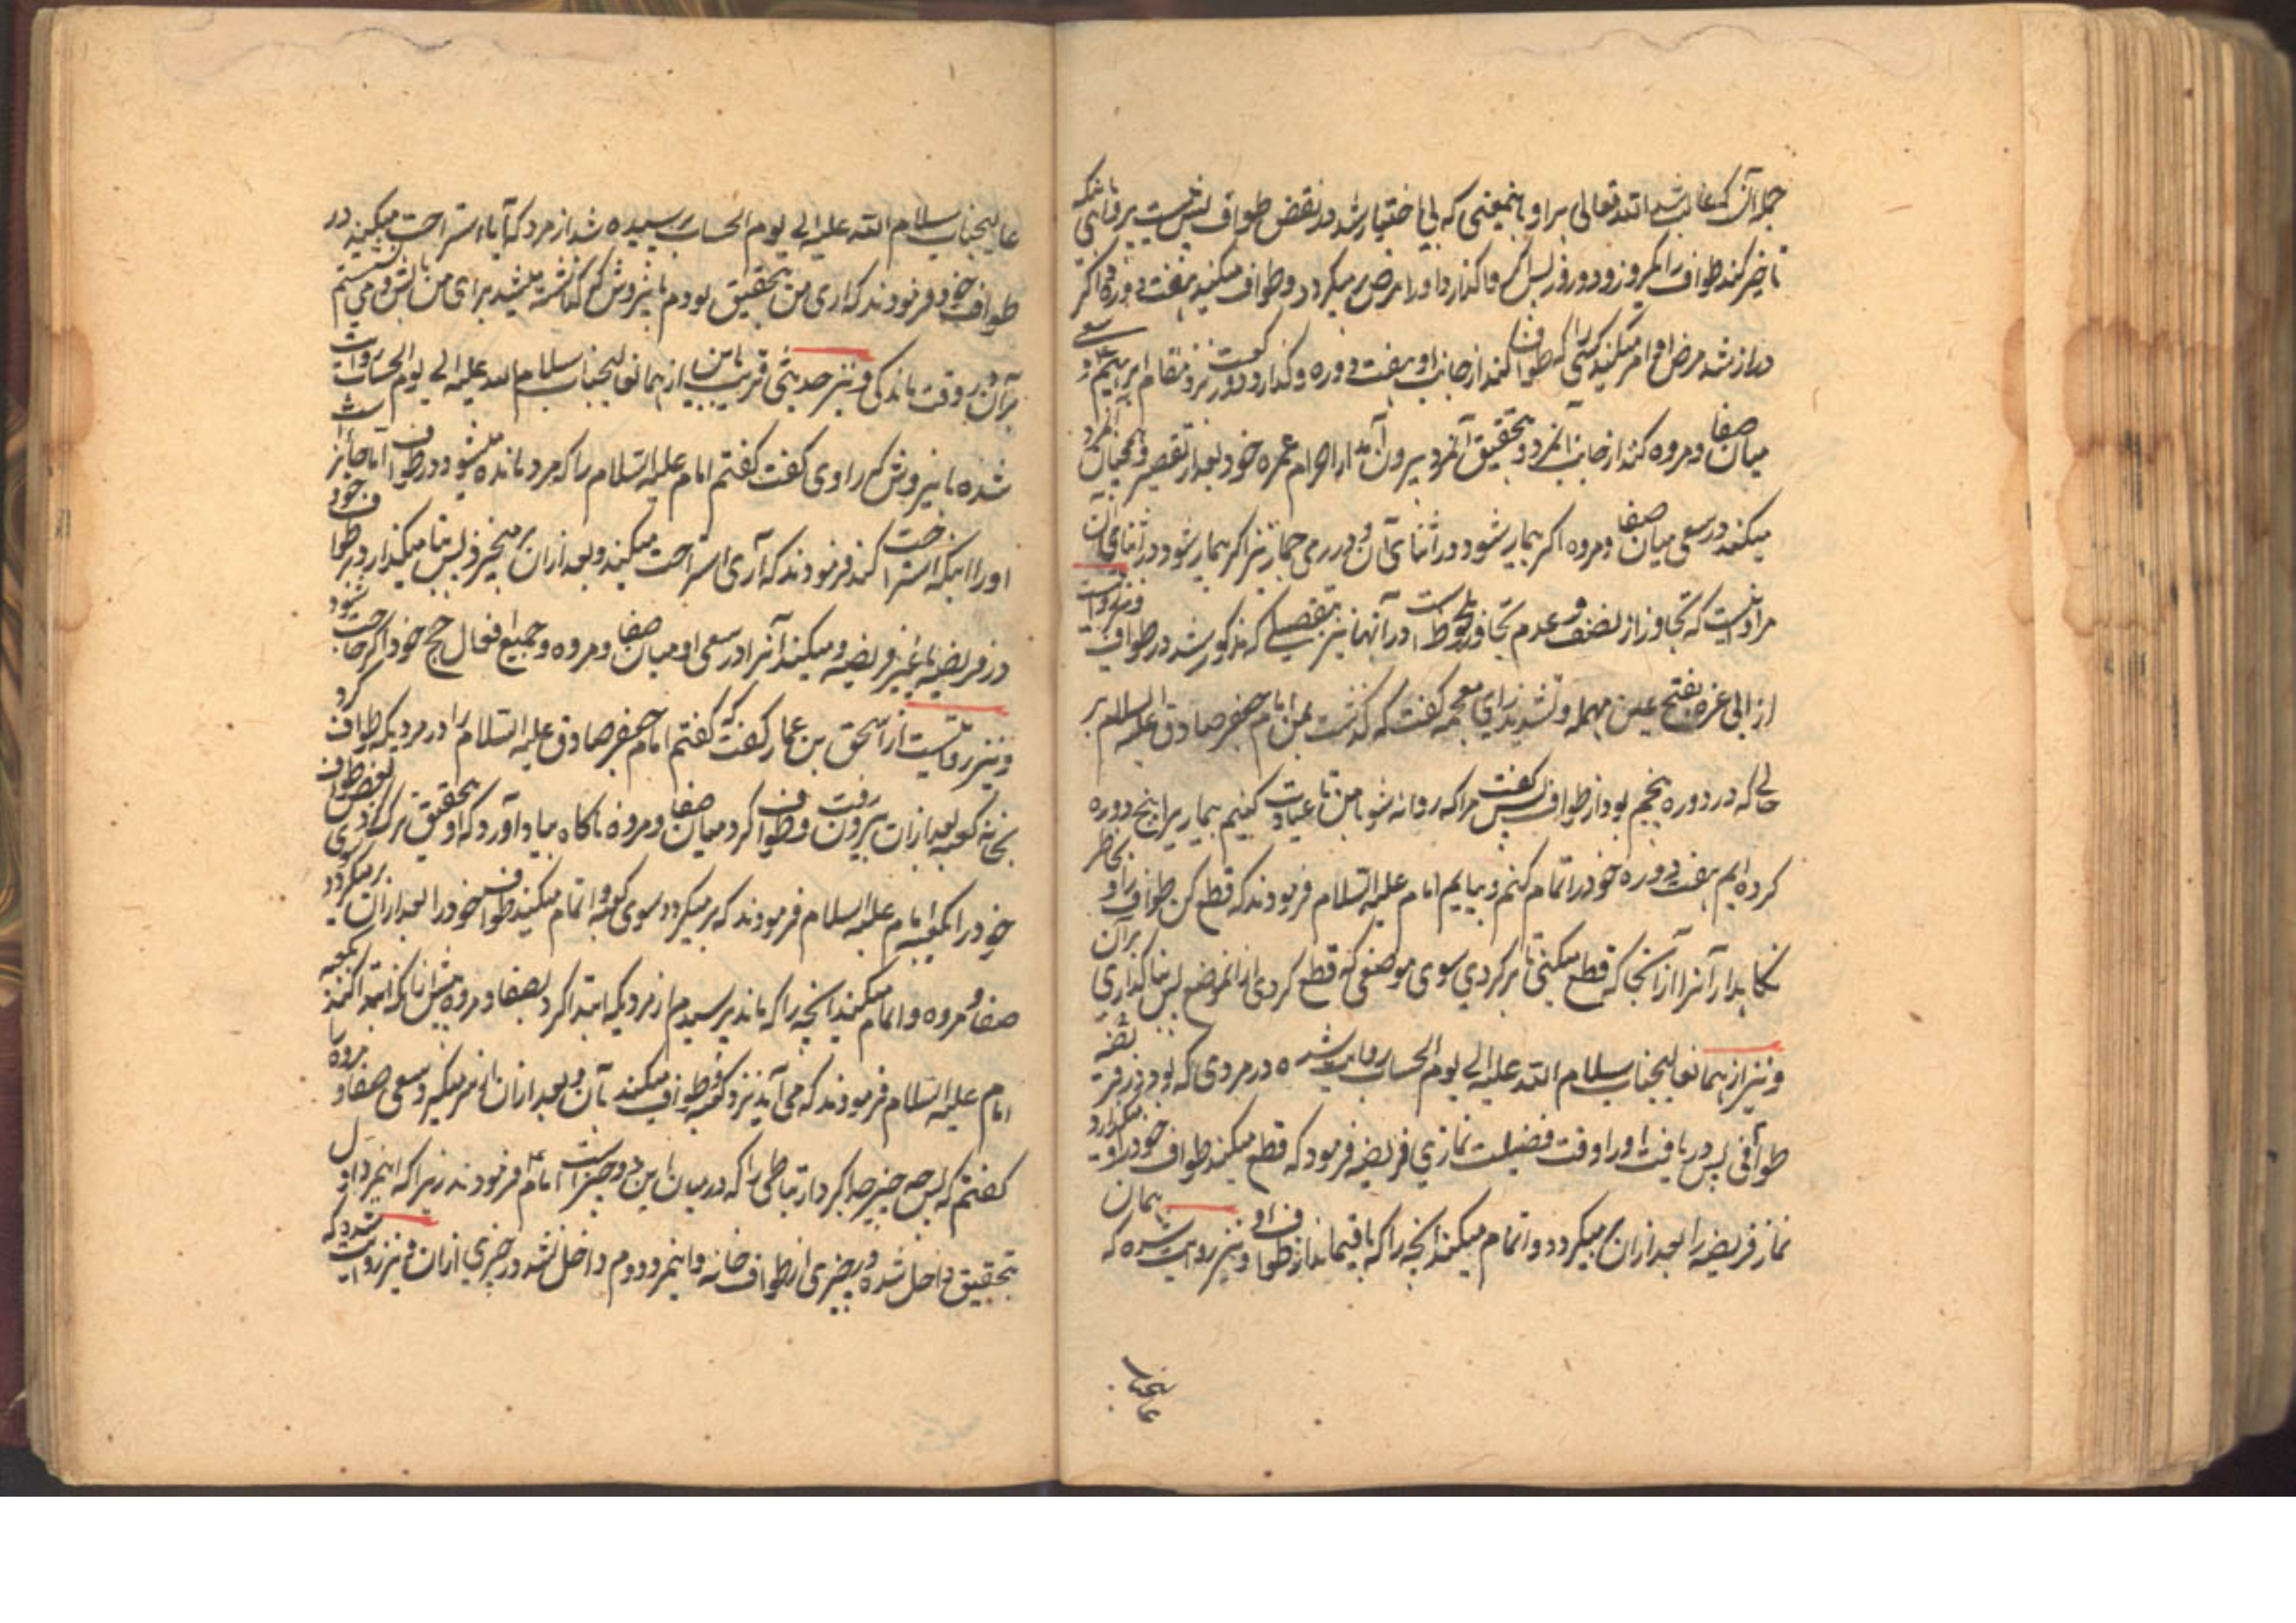 جمله آن که غالب شد الله تعالی بر او باینمعنی که بی اختیار شد در نقض طواف پس نیست بر او باکی اینکه
تاخیر کند طواف را یکروز و دو روز پس اگر وا گذارد او را مرض بر میگردد و طواف میکند هفت دوره و اگر
دراز شد مرض او امر میکند کسی را که طواف کند از جانب او هفت دوره و گذارد دو رکعت نزد مقام ابرهیم و سعی
میان صفا و مروه کند از جانب آنمرد و بتحقیق آنمرد بیرون آمد از احرام عمره خود بعد از تقصیر و همچنان
میکند در سعی میان صفا و مروه اگر بیمار شود در اثنای آن و در رمی جمار نیز اگر بیمار شود در اثنای آن
مراد اینست که تجاوز از نصف و عدم تجاوز ملحوظ است در آنها نیز بتفصیلی که مذکور شد در طواف و نیز روایت است
از ابی غره بفتح عین مهمله و تشدید زای معجمه گفت که گذشت بمن امام جعفر صادق علیه السلام بر
حالی که در دوره پنجم بود از طواف پس گفت مرا که روانه شو با من تا عیادت کنیم بیماریرا پنج دوره
کرده ایم هفت دوره خود را تمام کنم و بیایم امام علیه السلام فرمودند که قطع کن طواف را و بخاطر
نگاه بدار آنرا از آنجا که قطع میکنی تا بر گردی سوی موضعی که قطع کردی از انموضع پس بنا گذاری بر آن
و نیز از همان عالیجناب سلام الله علیه الی یوم الحساب روایت شده در مردی که بود در فریضه
طوافی پس دریافت او را وقت فضیلت نمازی فریضه فرمود که قطع میکند طواف خود را و میگذارد
نماز فریضه را بعد از ان بر میگردد و اتمام میکند انچه را که باقیمانده از طواف او و نیز روایت شده که همان
عالیجناب
عالیجناب سلام الله علیه الی یوم الحساب پرسیده شد از مرد که آیا استراحت میکند در
طواف خود فرمودند که آری من بتحقیق بودم باینروش که گذاشته میشد برای من بالشی و می نشستم
بر آن در وقت ماندگی و نیز حدیثی قریب باین از همان عالیجناب سلام الله علیه الی یوم الحساب روایت
شده باینروش که راوی گفت گفتم امام علیه السلام را که مرد مانده میشود در طواف آیا جائز است
او را اینکه استراحت کند فرمودند که آری استراحت میکند و بعد از ان بر میخیزد پس بنا میگذارد بر طواف خود
در فریضه یا غیر فریضه و میکند آنرا در سعی او میان صفا و مروه و جمیع افعال حج خود اگر حاجت شود
و نیز روایتست از اسحق بن عمار گفت که گفتم امام جعفر صادق علیه السلام را در مردیکه طواف کرد
بخانه کعبه بعد از ان بیرون رفت و طواف کرد میان صفا و مروه ناگاه بیاد آورد که او بتحقیق ترک کرد بعض طواف
خود را بکعبه امام علیه السلام فرمودند که بر میگردد سوی کعبه و اتمام میکند طواف خود را بعد از ان بر میگردد سوی
صفا و مروه و اتمام میکند انچه را که ماند پرسیدم از مردیکه ابتدا کرد بصفا و مروه پیش از انکه ابتدا کند بکعبه
امام علیه السلام فرمودند که می آید نزد کعبه و طواف میکند بآن و بعد از ان از سر میگیرد سعی صفا و مروه را
گفتم که پس چه چیز جدا کرد ارتباطی را که در میان این دو چیز است امام فرمودند زیرا که اینمرد اول
بتحقیق داخل شده در چیزی از طواف خانه و اینمرد دوم داخل نشد در چیزی از ان و نیز روایت شده که